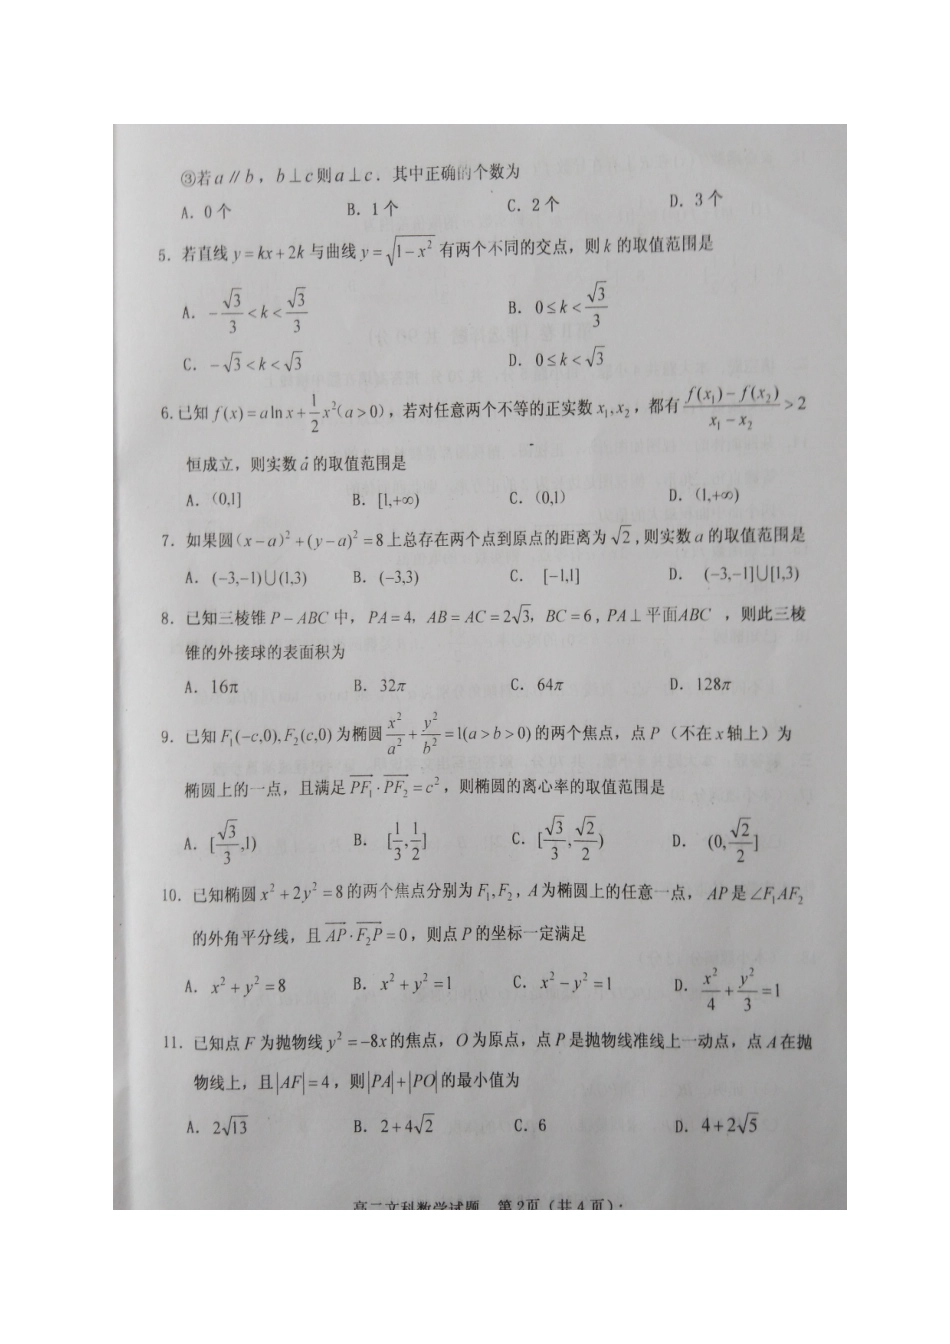 ③若a∥b，b⊥c则a⊥c．其中正确的个数为
A．0个 B．1个 C．2个 D．3个
5．若直线y=kx+2k与曲线y=√(1-x²)有两个不同的交点，则k的取值范围是
A．-√3/3<k<√3/3 B．0≤k<√3/3
C．-√3<k<√3 D．0≤k<√3
6.已知f(x)=alnx+1/2x²(a>0)，若对任意两个不等的正实数x₁,x₂，都有(f(x₁)-f(x₂))/(x₁-x₂)>2
恒成立，则实数a的取值范围是
A．(0,1] B．[1,+∞) C．(0,1) D．(1,+∞)
7．如果圆(x-a)²+(y-a)²=8上总存在两个点到原点的距离为√2,则实数a的取值范围是
A．(-3,-1)∪(1,3) B．(-3,3) C．[-1,1] D．(-3,-1]∪[1,3)
8．已知三棱锥P-ABC中，PA=4，AB=AC=2√3，BC=6,PA⊥平面ABC，则此三棱
锥的外接球的表面积为
A．16π B．32π C．64π D．128π
9．已知F₁(-c,0),F₂(c,0)为椭圆x²/a²+y²/b²=1(a>b>0)的两个焦点，点P（不在x轴上）为
椭圆上的一点，且满足PF₁·PF₂=c²，则椭圆的离心率的取值范围是
A．[√3/3,1) B．[1/3,1/2] C．[√3/3,√2/2) D．(0,√2/2]
10．已知椭圆x²+2y²=8的两个焦点分别为F₁,F₂，A为椭圆上的任意一点，AP是∠F₁AF₂
的外角平分线，且AP·F₂P=0，则点P的坐标一定满足
A．x²+y²=8 B．x²+y²=1 C．x²-y²=1 D．x²/4+y²/3=1
11．已知点F为抛物线y²=-8x的焦点，O为原点，点P是抛物线准线上一动点，点A在抛
物线上，且|AF|=4，则|PA|+|PO|的最小值为
A．2√13 B．2+4√2 C．6 D．4+2√5
高二文科数学试题 第2页（共4页）